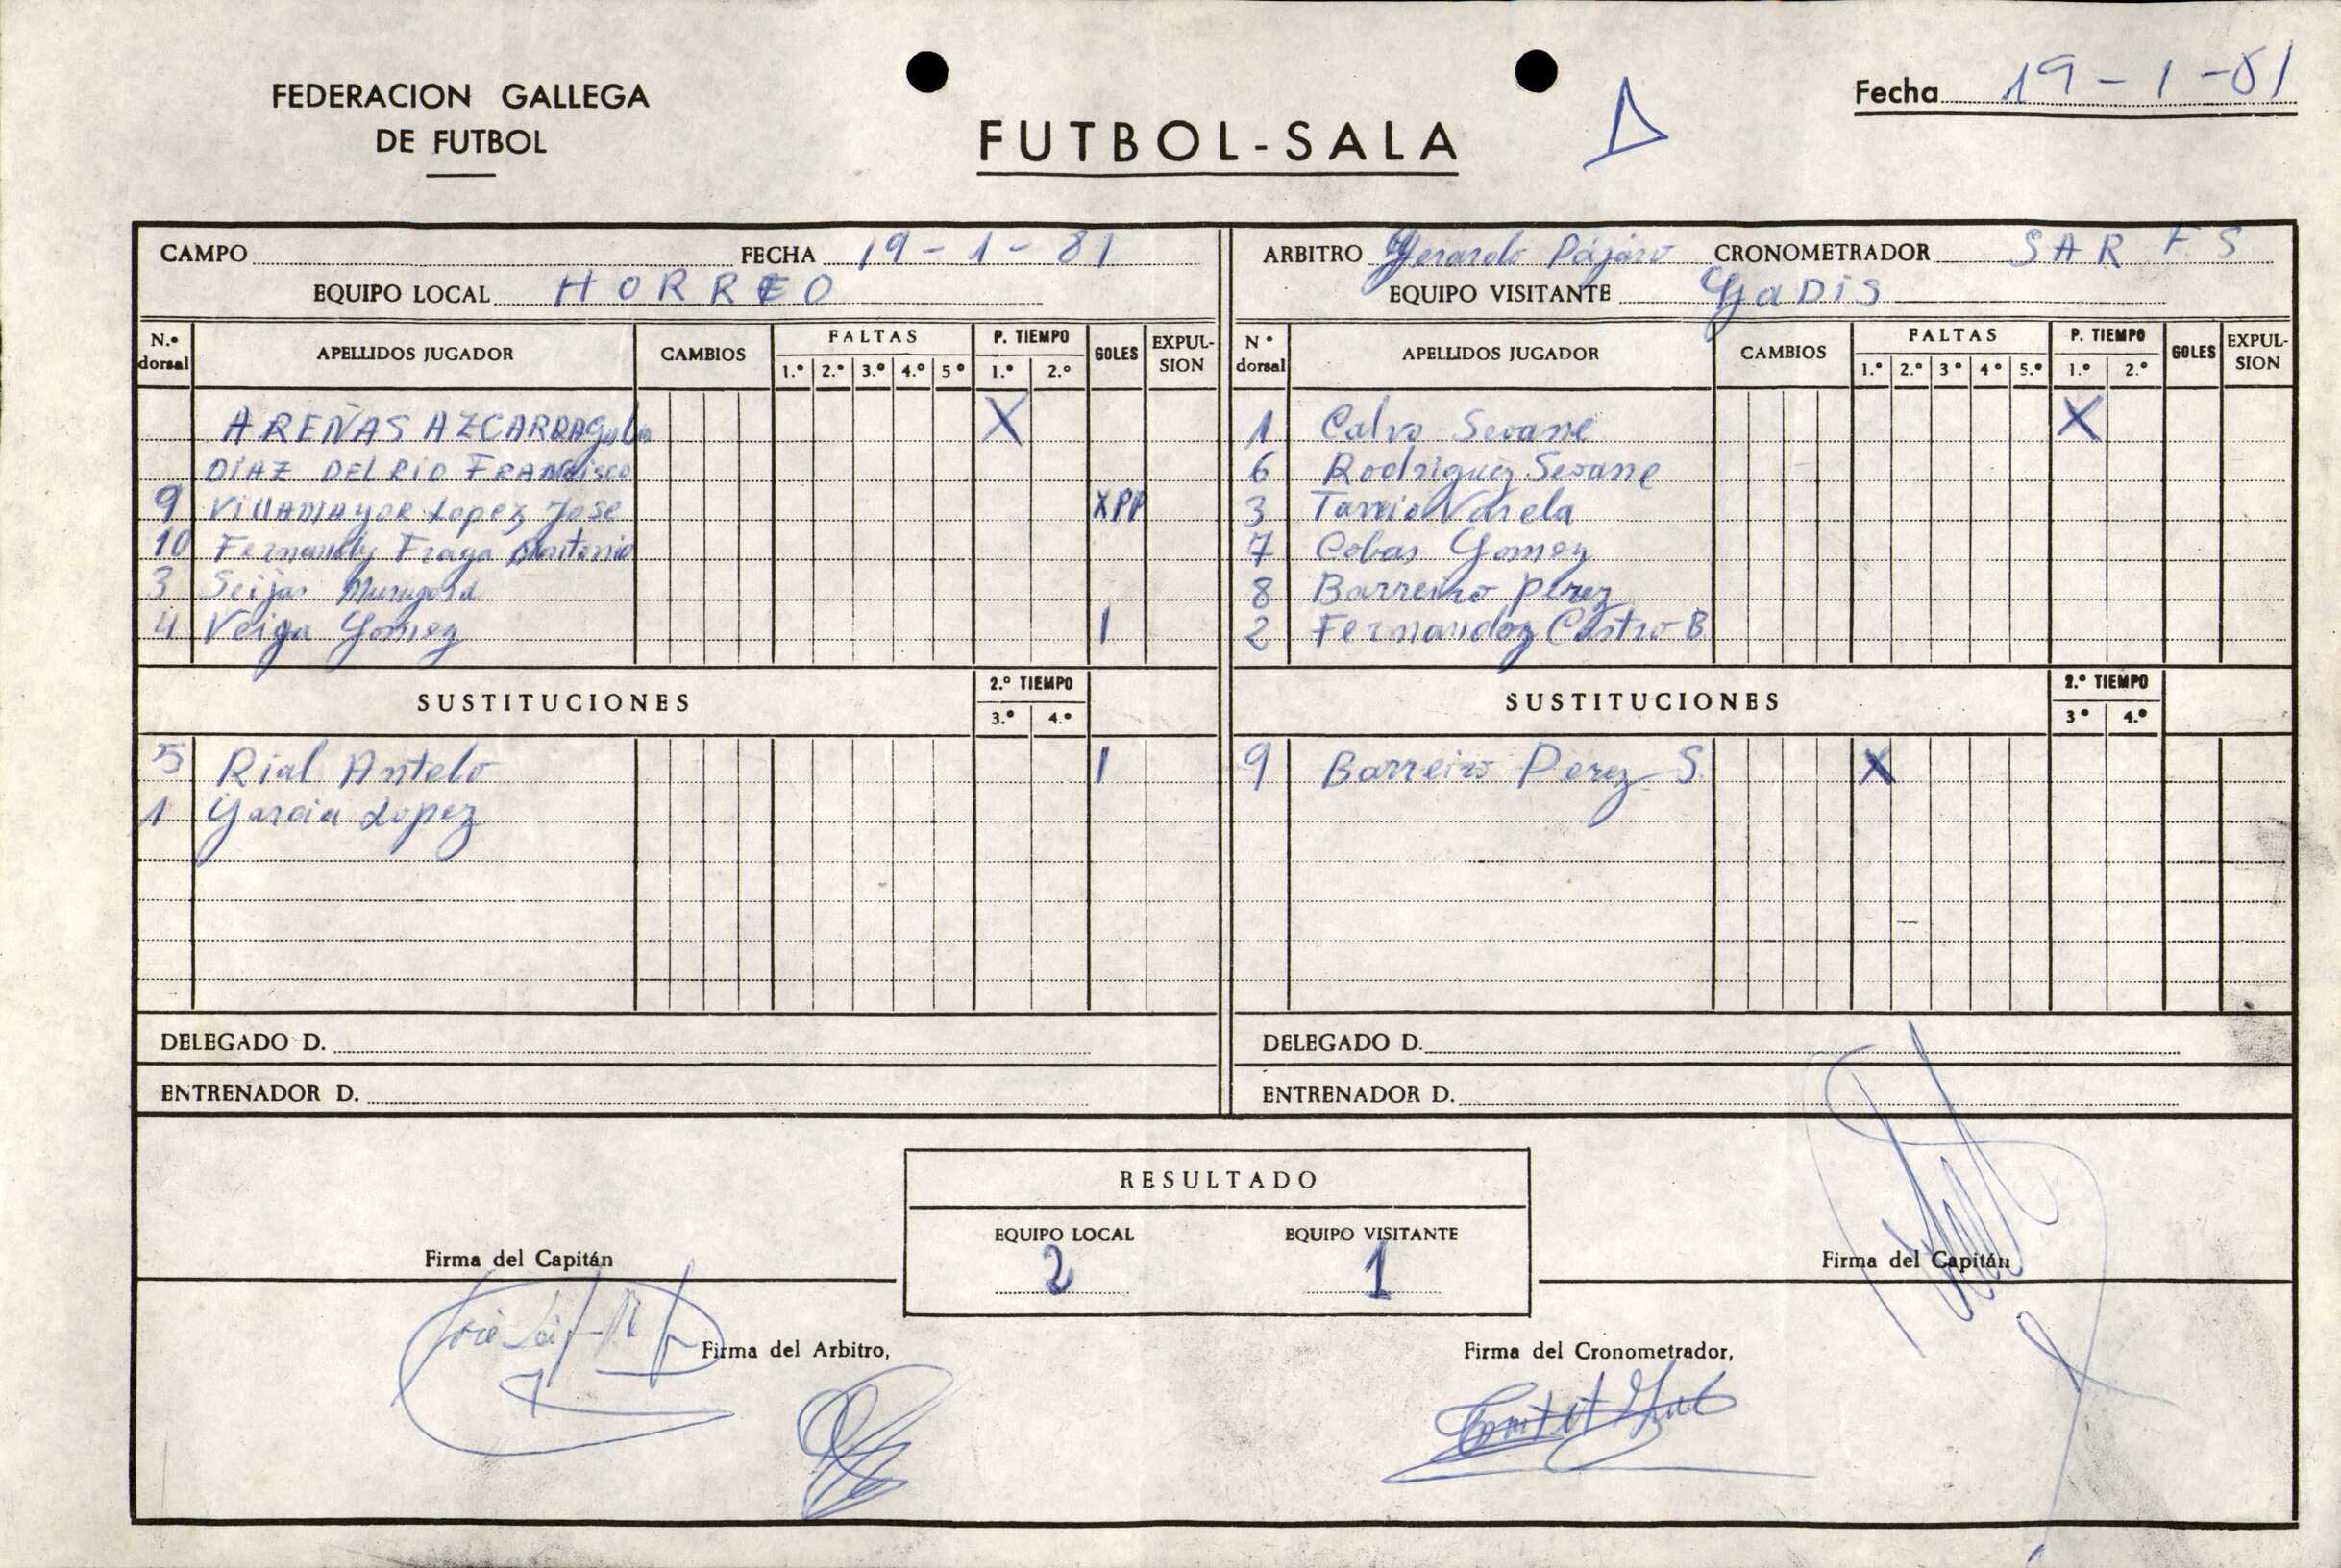 FEDERACION GALLEGA
DE FUTBOL
FUTBOL-SALA
Fecha 19-1-81
CAMPO FECHA 19-1-81
EQUIPO LOCAL HORREO
N.º dorsal APELLIDOS JUGADOR CAMBIOS FALTAS 1.º 2.º 3.º 4.º 5º P. TIEMPO 1.º 2.º GOLES EXPUL-SION
AREÑAS X
DIAZ DEL RIO FRANCISCO
9 VILLAMAYOR Lopez Jose XPP
10 Fernandez Fraga Antonio
3 Seijas
4 Veiga Gomez 1
SUSTITUCIONES 2.º TIEMPO 3.º 4.º
5 Rial Antelo 1
1 Garcia Lopez
DELEGADO D.
ENTRENADOR D.
ARBITRO Gerardo Pájaro CRONOMETRADOR SAR F.S
EQUIPO VISITANTE GaDiS
Nº dorsal APELLIDOS JUGADOR CAMBIOS FALTAS 1.º 2.º 3º 4º 5.º P. TIEMPO 1.º 2.º GOLES EXPUL-SION
1 Calvo Seoane X
6 Rodriguez Seoane
3 Tarrio Varela
7 Cobas Gomez
8 Barreiro Perez
2 Fernandez Castro B
SUSTITUCIONES 2.º TIEMPO 3º 4.º
9 Barreiro Perez S. X
DELEGADO D.
ENTRENADOR D.
RESULTADO
EQUIPO LOCAL EQUIPO VISITANTE
2 1
Firma del Capitán
Firma del Capitán
Firma del Arbitro,
Firma del Cronometrador,